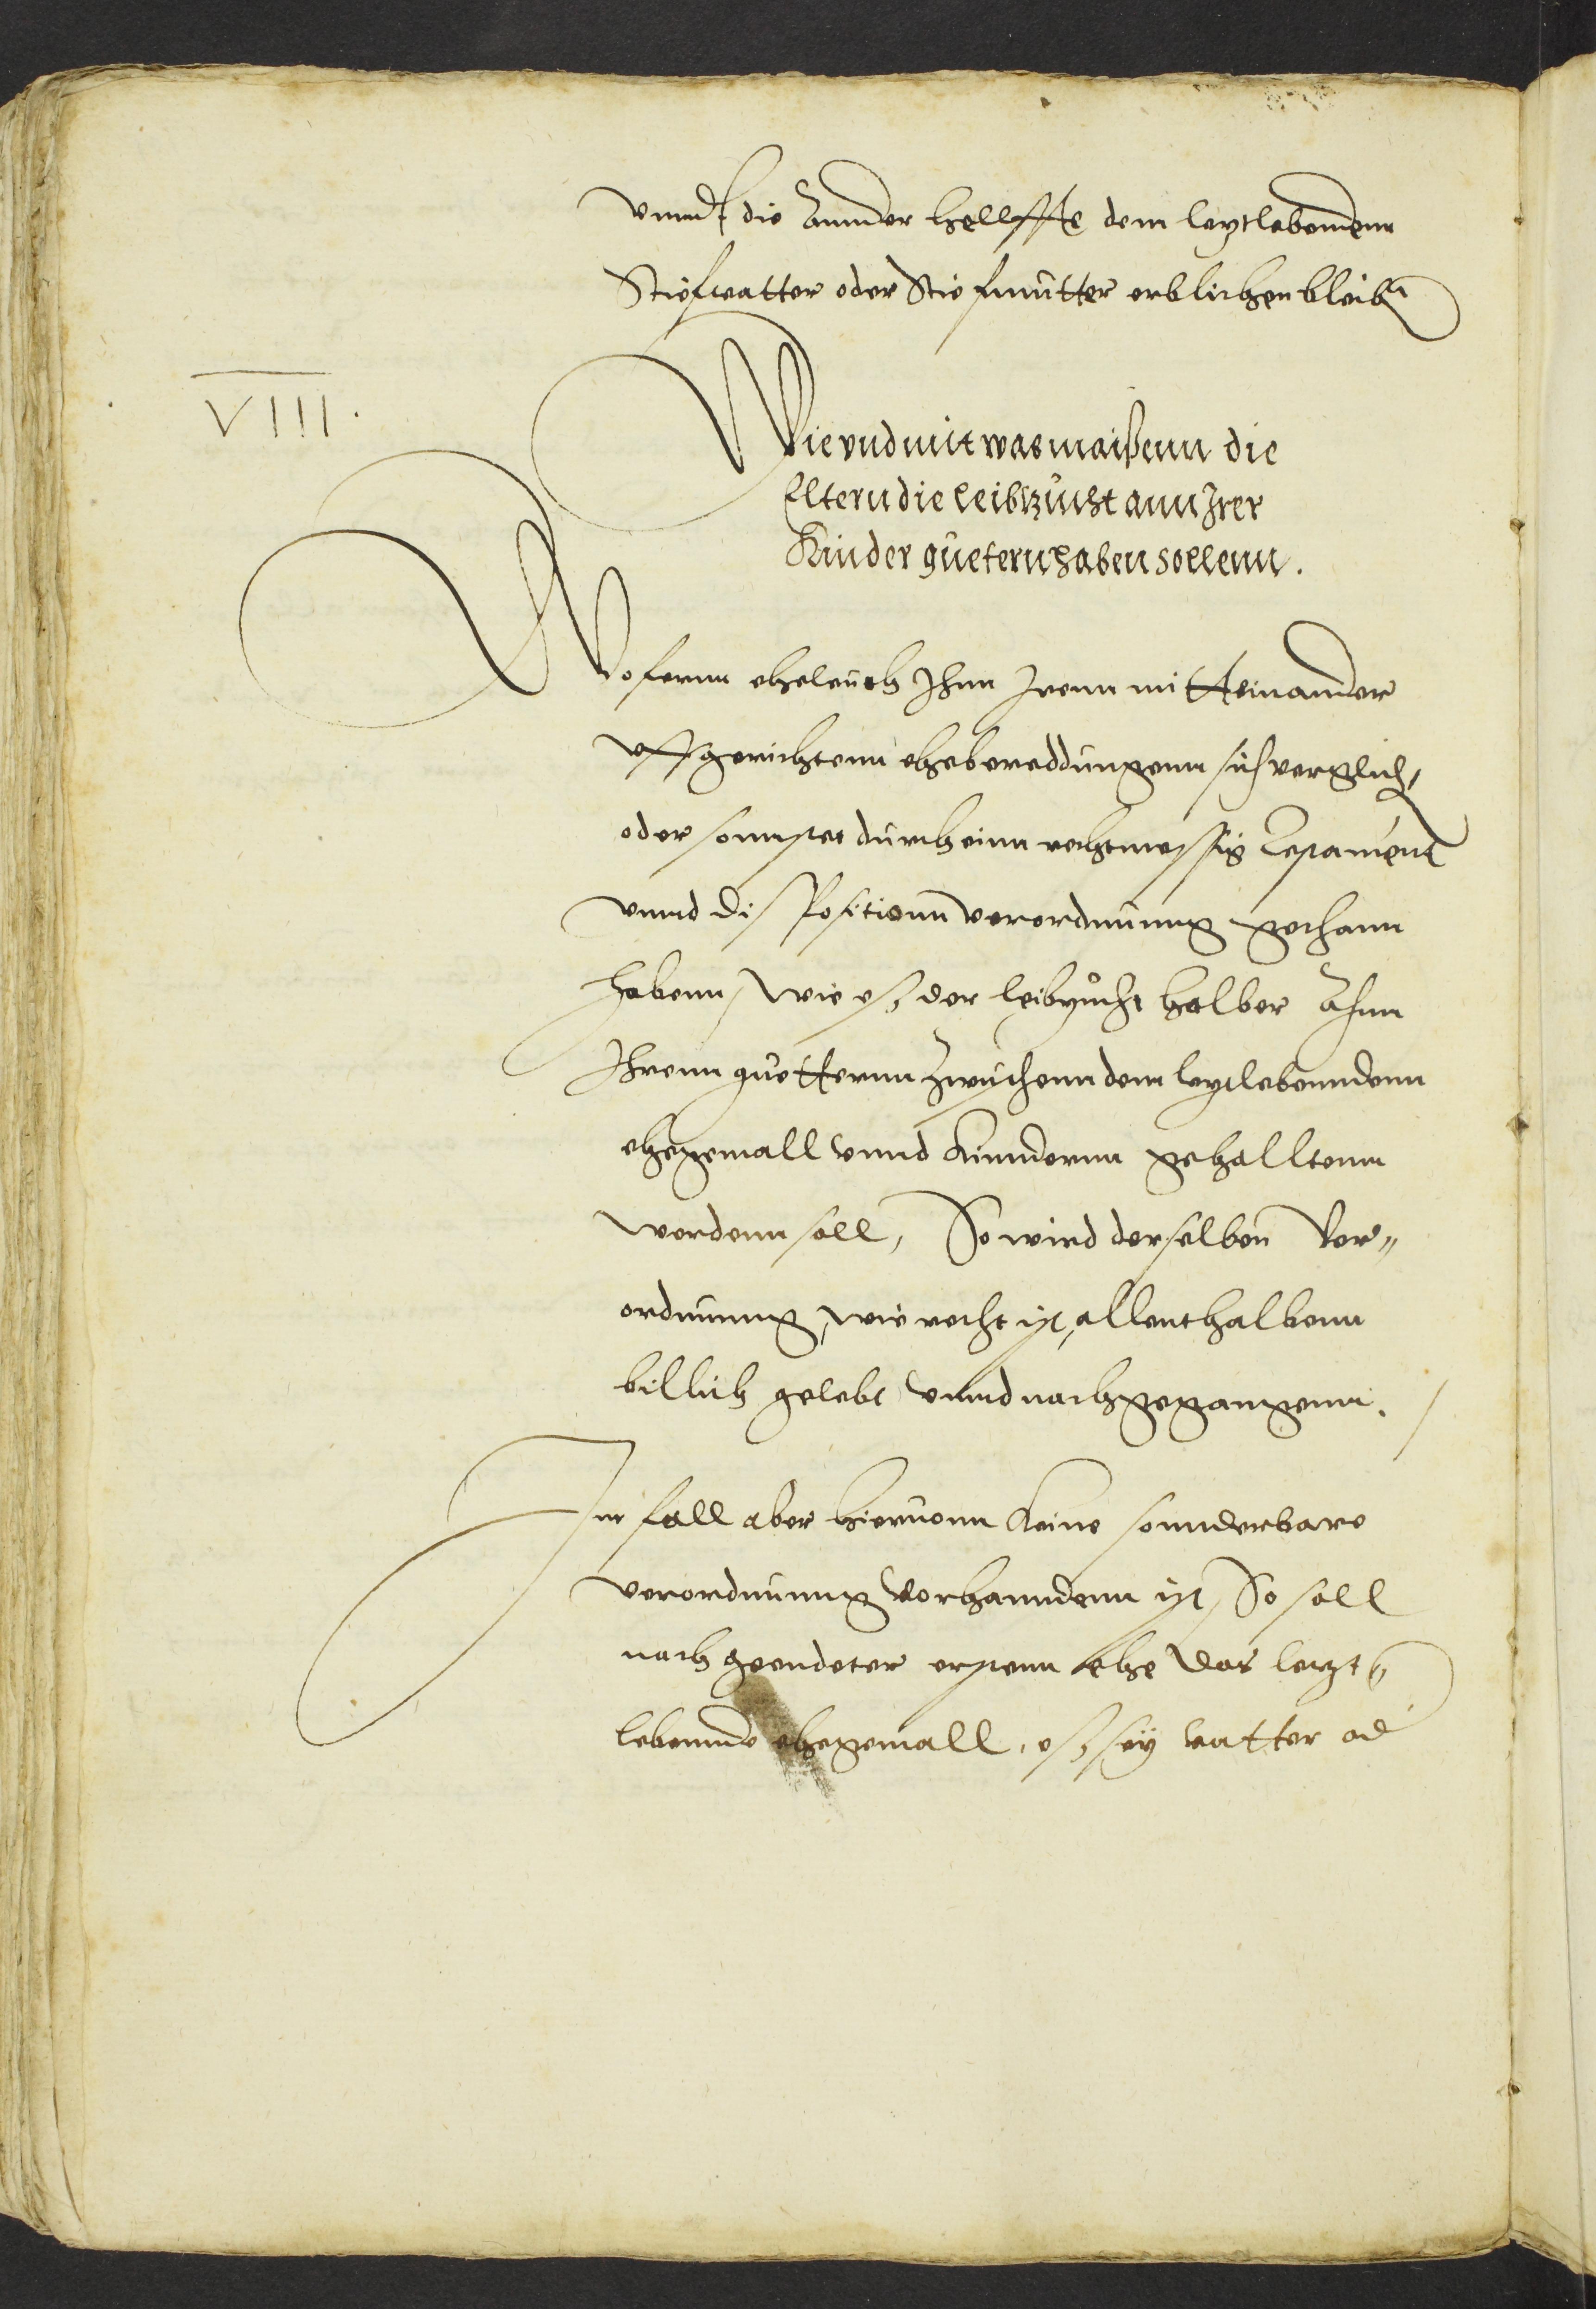 vnnd die Annder hellffte dem letztlebendenn
Stiefvatter oder Stiefmutter erblichen bleibn
VIII.
Wie vnd mit was maißenn die
Elltern die leibtzucht ann Irer
Kinder guetern haben sollenn.
Wofernn eheleuth Ihnn Irenn mitteinander
vffgerichtenn ehebereddungenn sich verglich,
oder sonnsten durch einn rechtmessig Testament
vnnd dispositionn verordnung gethann
habenn, wie eß der leibzucht halber Ahnn
Ihrenn guetternn zwuschenn dem letztlebenndenn
ehegemall vnnd Kinndernn gehalltenn
werdenn soll, So wird derselben Ver"
ordnung, wie recht ist, allenthalbenn
billich gelebt vnnd nachgegangenn.
Im fall aber hieruonn keine sonnderbare
verordnung vorhanndenn ist, So soll
nach geendeter erstenn ehe das letzt
lebennde ehegemall, eß sey vatter od